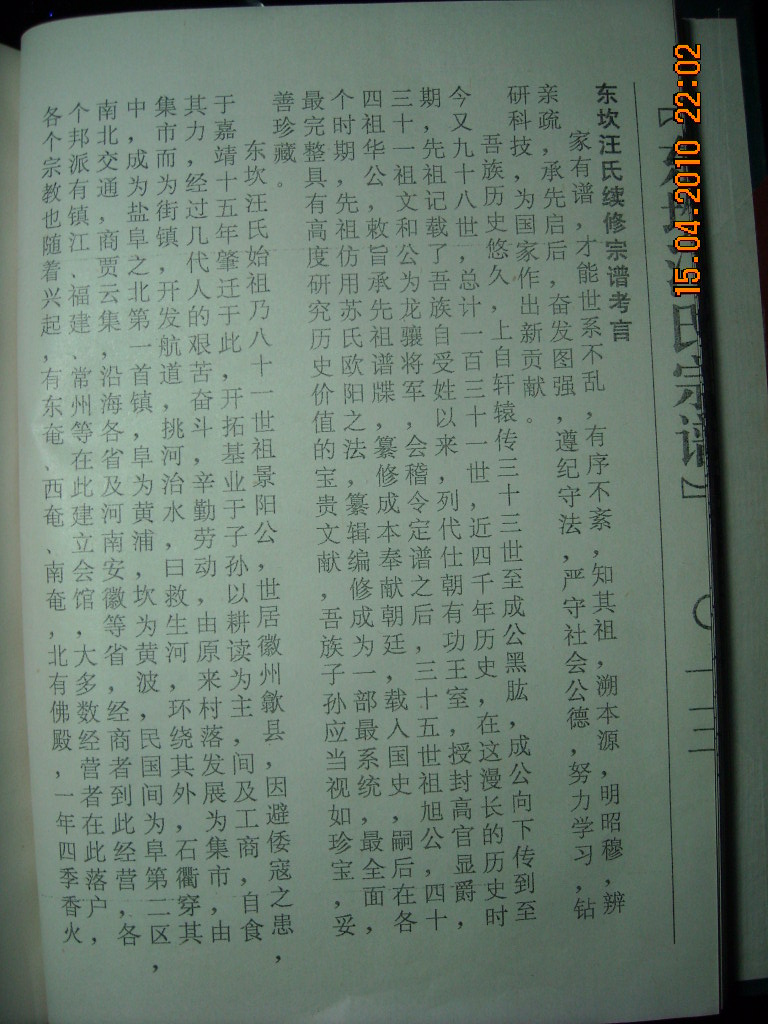 15.04.2010 22:02
【东坎汪氏宗谱】
〇一二
东坎汪氏续修宗谱考言
家有谱，才能世系不乱，有序不紊，知其祖，溯本源，明昭穆，辨
亲疏，承先启后，奋发图强，遵纪守法，严守社会公德，努力学习，钻
研科技，为国家作出新贡献。
吾族历史悠久，上自轩辕传三十三世至成公黑肱，成公向下传到至
今又九十八世，总计一百三十一世，近四千年历史，在这漫长的历史时
期，先祖记载了吾族自受姓以来，列代仕朝有功王室，授封高官显爵，
三十一祖文和公为龙骧将军，会稽令定谱之后，三十五世祖旭公，四十
四祖华公，敕旨承先祖谱牒，纂修成本奉献朝廷，载入国史，嗣后在各
个时期，先祖仿用苏氏欧阳之法，纂辑编修成为一部最系统，最全面，
最完整具有高度研究历史价值的宝贵文献，吾族子孙应当视如珍宝，妥
善珍藏。
东坎汪氏始祖乃八十一世祖景阳公，世居徽州歙县，因避倭寇之患，
于嘉靖十五年肇迁于此，开拓基业于子孙以耕读为主，间及工商，自食
其力，经过几代人的艰苦奋斗，辛勤劳动，由原来村落发展为集市，由
集市而为街镇，开发航道，挑河治水，曰救生河，环绕其外，石衢穿其
中，成为盐阜之北第一首镇，阜为黄浦，坎为黄波，民国间为阜第二区，
南北交通，商贾云集，沿海各省及河南安徽等省，经商者到此经营，各
个邦派有镇江、福建、常州等在此建立会馆，大多数经营者在此落户，
各个宗教也随着兴起，有东奄、西奄、南奄，北有佛殿，一年四季香火